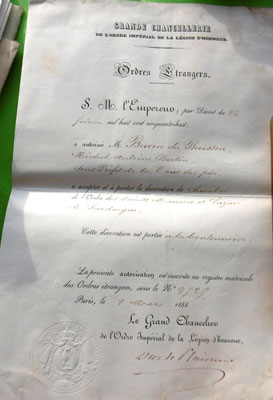 GRANDE CHANCELLERIE
DE L'ORDRE IMPÉRIAL DE LA LÉGION D'HONNEUR.
Ordres Étrangers.
S. M. l'Empereur, par Décret du 24
février mil huit cent cinquante huit,
a autorisé M. Buron du Buisson
Michel Antoine
Sous Préfet de la Tour du pin
à accepter et à porter la décoration de chevalier
de l'Ordre des Saints Maurice et Lazare
de Sardaigne
Cette décoration est portée à la boutonnière
La présente autorisation est inscrite au registre matricule
des Ordres étrangers, sous le N°
Paris, le 2 Mars 1858.
Le Grand Chancelier
de l'Ordre Impérial de la Légion d'honneur,
Duc de Plaisance